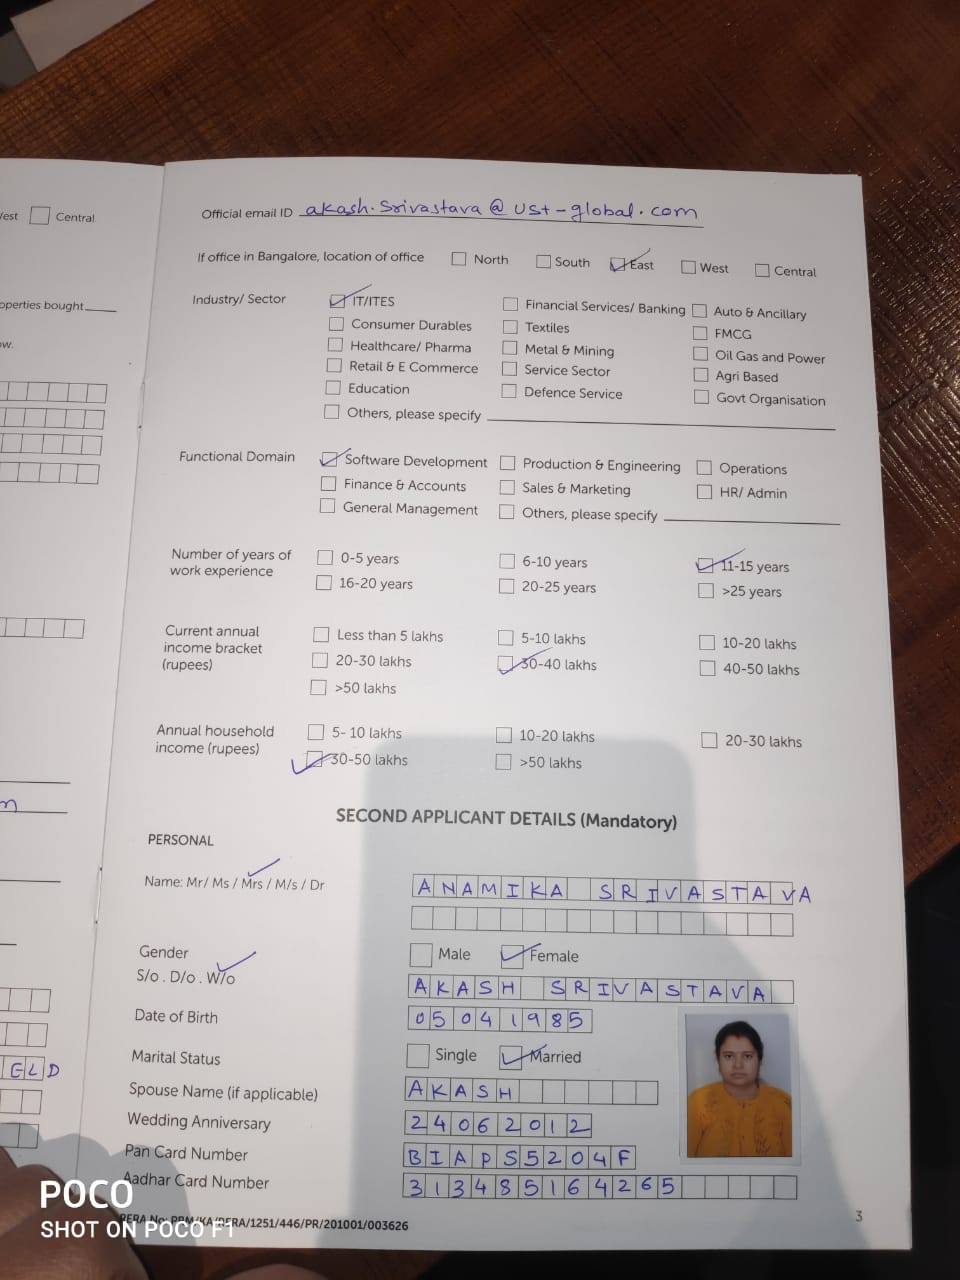 West Central
Official email ID akash.srivastava@ust-global.com
If office in Bangalore, location of office North South East West Central
operties bought
Industry/ Sector IT/ITES Financial Services/ Banking Auto & Ancillary
Consumer Durables Textiles FMCG
ow.
Healthcare/ Pharma Metal & Mining Oil Gas and Power
Retail & E Commerce Service Sector Agri Based
Education Defence Service Govt Organisation
Others, please specify
Functional Domain Software Development Production & Engineering Operations
Finance & Accounts Sales & Marketing HR/ Admin
General Management Others, please specify
Number of years of work experience 0-5 years 6-10 years 11-15 years
16-20 years 20-25 years >25 years
Current annual income bracket (rupees) Less than 5 lakhs 5-10 lakhs 10-20 lakhs
20-30 lakhs 30-40 lakhs 40-50 lakhs
>50 lakhs
Annual household income (rupees) 5- 10 lakhs 10-20 lakhs 20-30 lakhs
30-50 lakhs >50 lakhs
SECOND APPLICANT DETAILS (Mandatory)
PERSONAL
Name: Mr/ Ms / Mrs / M/s / Dr ANAMIKA SRIVASTAVA
Gender Male Female
S/o . D/o . W/o AKASH SRIVASTAVA
Date of Birth 05041985
Marital Status Single Married
ELD
Spouse Name (if applicable) AKASH
Wedding Anniversary 24062012
Pan Card Number BIAPS5204F
Aadhar Card Number 313485164265
RERA No: PRM/KA/RERA/1251/446/PR/201001/003626
3
POCO
SHOT ON POCO F1